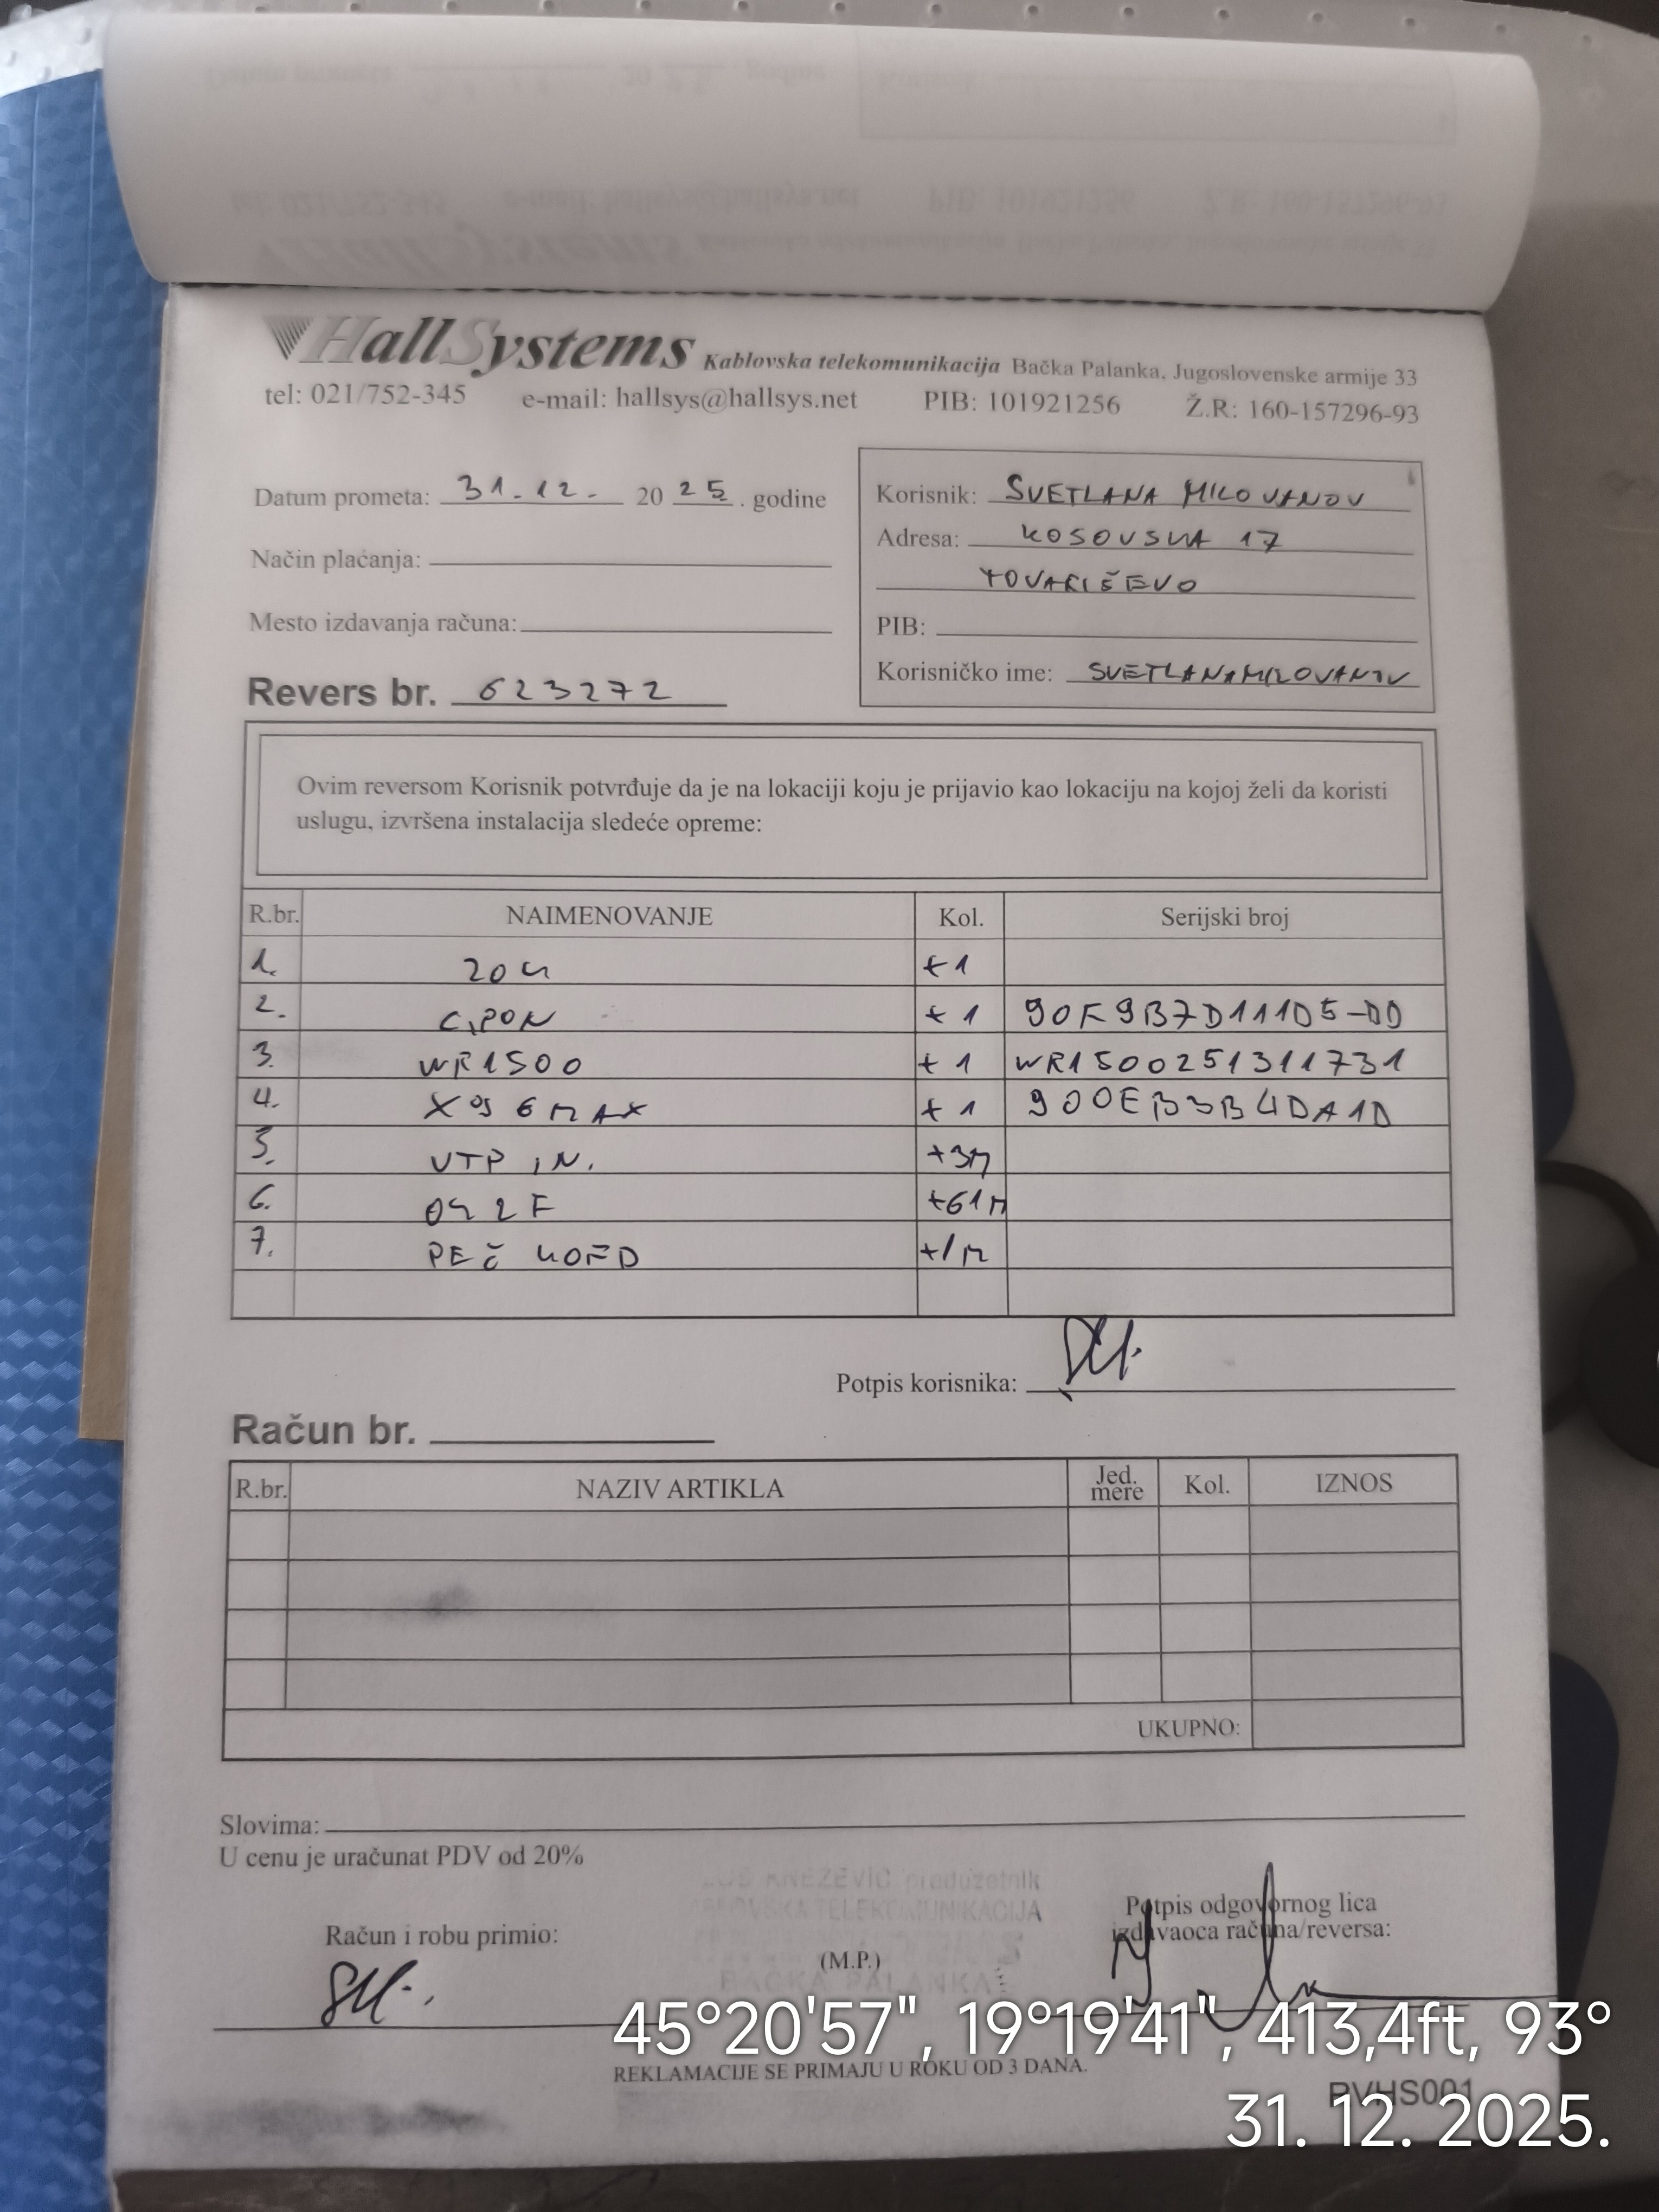 HallSystems Kablovska telekomunikacija Bačka Palanka, Jugoslovenske armije 33
tel: 021/752-345 e-mail: hallsys@hallsys.net PIB: 101921256 Ž.R: 160-157296-93
Datum prometa: 31.12. 20 25. godine
Način plaćanja:
Mesto izdavanja računa:
Revers br. 623272
Korisnik: SVETLANA MILOVANOV
Adresa: KOSOVSKA 17
TOVARIŠEVO
PIB:
Korisničko ime: SVETLANAMILOVANOV
Ovim reversom Korisnik potvrđuje da je na lokaciji koju je prijavio kao lokaciju na kojoj želi da koristi
uslugu, izvršena instalacija sledeće opreme:
R.br. NAIMENOVANJE Kol. Serijski broj
1. +1
2. GPON +1
3. WR1500 +1 WR1500251311731
4. 6 MAX +1 900EB3B4DA1D
5. UTP IN. +3M
6. 2F +61M
7. PEČ KORD +1M
Potpis korisnika:
Račun br.
R.br. NAZIV ARTIKLA Jed. mere Kol. IZNOS
UKUPNO:
Slovima:
U cenu je uračunat PDV od 20%
KNEŽEVIĆ preduzetnik
TELEKOMUNIKACIJA
BAČKA PALANKA
Račun i robu primio:
(M.P.)
Potpis odgovornog lica
izdavaoca računa/reversa:
45°20'57", 19°19'41", 413,4ft, 93°
REKLAMACIJE SE PRIMAJU U ROKU OD 3 DANA.
RVHS001
31. 12. 2025.